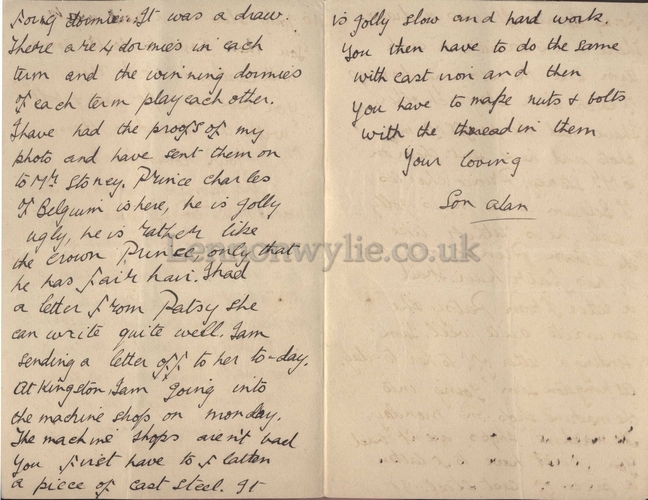 fong dormie. It was a draw.
There are 4 dormies in each
term and the winning dormies
of each term play each other.
I have had the proofs of my
photo and have sent them on
to Mr. Stoney. Prince Charles
of Belgium is here, he is jolly
ugly, he is rather like
the crown Prince, only that
he has fair hair. I had
a letter from Patsy she
can write quite well. I am
sending a letter off to her to-day.
At Kingston, I am going into
the machine shops on monday.
The machine shops aren't bad
You first have to flatten
a piece of cast steel. It
is jolly slow and hard work.
You then have to do the same
with cast iron and then
You have to make nuts & bolts
with the thread in them
Your loving
Son alan
Lennonwylie.co.uk